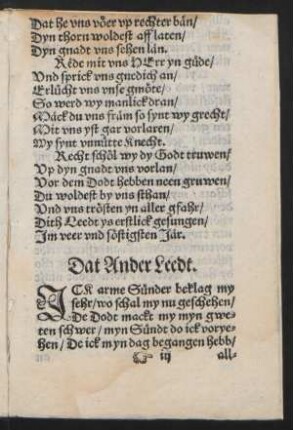 Dat he vns vöer vp rechter bán/
Dyn thorn woldest aff laten/
Dyn gnadt vns sehen lán.
Réde mit vns HErr yn güde/
Vnd sprick vns gnedich an/
Erlücht vns vnse gmöte/
So werd wy manlick dran/
Máck du vns frám so synt wy grecht/
Mit vns yst gar vorlaren/
Wy synt vnnütte Knecht.
Recht schöl wy dy Godt truwen/
Vp dyn gnadt vns vorlan/
Vor dem Dodt hebben neen gruwen/
Du woldest by vns sthan/
Vnd vns trösten yn aller gfahr/
Dith Leedt ys erstlick gesungen/
Im veer vnd söstigsten Jár.
Dat Ander Leedt.
ICK arme Sünder beklag my
sehr/wo schal my nu geschehen/
De Dodt mackt my myn gwe-
ten schwer/myn Sündt do ick vorye-
hen/De ick myn dag begangen hebb/
iij all-